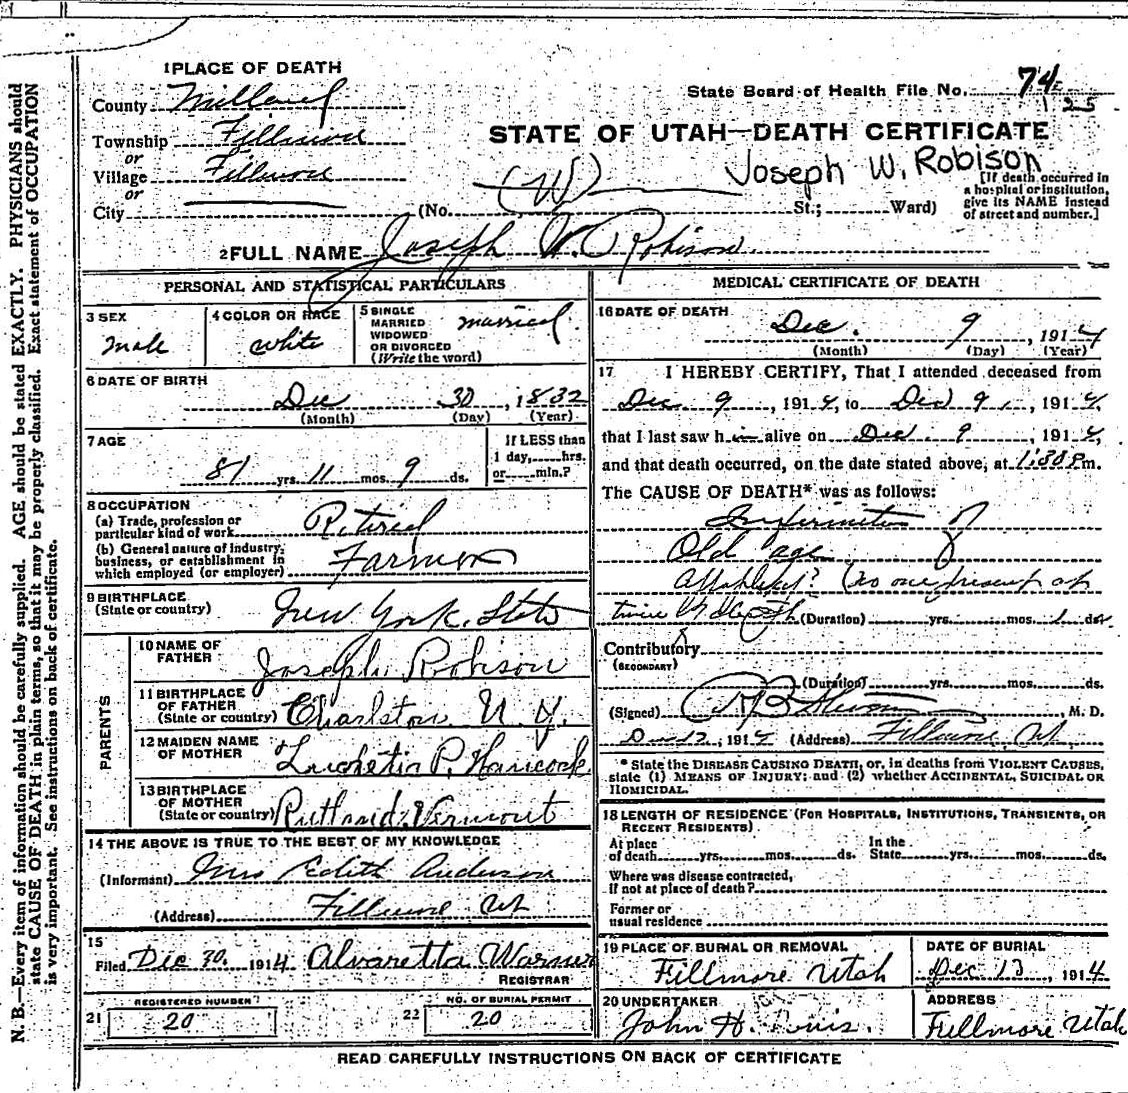 1 PLACE OF DEATH
County Millard
Township Fillmore
or
Village Fillmore
or
City
State Board of Health File No. 74
125
STATE OF UTAH—DEATH CERTIFICATE
Joseph W. Robison
(W)
(No. St.; Ward)
[If death occurred in
a hospital or institution,
give its NAME instead
of street and number.]
2 FULL NAME Joseph W. Robison
PERSONAL AND STATISTICAL PARTICULARS
3 SEX
male
4 COLOR OR RACE
white
5 SINGLE
MARRIED
WIDOWED
OR DIVORCED
(Write the word)
married
6 DATE OF BIRTH
Dec 30, 1832
(Month) (Day) (Year)
7 AGE
81 yrs. 11 mos. 9 ds.
If LESS than
1 day, hrs.
or min.?
8 OCCUPATION
(a) Trade, profession or
particular kind of work Retired
(b) General nature of industry,
business, or establishment in
which employed (or employer) Farmer
9 BIRTHPLACE
(State or country) New York State
PARENTS
10 NAME OF
FATHER Joseph Robison
11 BIRTHPLACE
OF FATHER
(State or country) Charlston N. Y.
12 MAIDEN NAME
OF MOTHER Luchetia P. Hancock
13 BIRTHPLACE
OF MOTHER
(State or country) Rutland Vermont
14 THE ABOVE IS TRUE TO THE BEST OF MY KNOWLEDGE
(Informant) Mrs Edith Anderson
(Address) Fillmore Ut
15
Filed Dec 30, 1914 Alvaretta Warner
REGISTRAR
21 REGISTERED NUMBER
20
22 NO. OF BURIAL PERMIT
20
MEDICAL CERTIFICATE OF DEATH
16 DATE OF DEATH
Dec. 9, 1914
(Month) (Day) (Year)
17 I HEREBY CERTIFY, That I attended deceased from
Dec 9, 1914, to Dec 9, 1914,
that I last saw him alive on Dec. 9, 1914,
and that death occurred, on the date stated above, at 1:30 P m.
The CAUSE OF DEATH* was as follows:
Infirmities of
Old age
(no one present at
time of death (Duration) yrs. mos. 1 ds.
Contributory
(SECONDARY)
(Duration) yrs. mos. ds.
(Signed) , M. D.
Dec 12, 1914 (Address) Fillmore Ut
* State the DISEASE CAUSING DEATH, or, in deaths from VIOLENT CAUSES,
state (1) MEANS OF INJURY; and (2) whether ACCIDENTAL, SUICIDAL OR
HOMICIDAL.
18 LENGTH OF RESIDENCE (FOR HOSPITALS, INSTITUTIONS, TRANSIENTS, OR
RECENT RESIDENTS)
At place
of death yrs. mos. ds.
In the
State yrs. mos. ds.
Where was disease contracted,
if not at place of death?
Former or
usual residence
19 PLACE OF BURIAL OR REMOVAL
Fillmore Utah
DATE OF BURIAL
Dec 13, 1914
20 UNDERTAKER
John H.
ADDRESS
Fillmore Utah
READ CAREFULLY INSTRUCTIONS ON BACK OF CERTIFICATE
N. B.—Every item of information should be carefully supplied. AGE should be stated EXACTLY. PHYSICIANS should
state CAUSE OF DEATH in plain terms, so that it may be properly classified. Exact statement of OCCUPATION
is very important. See instructions on back of certificate.